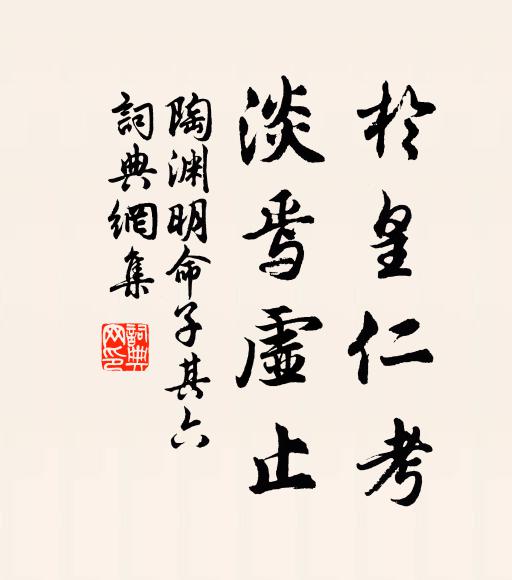 於皇仁考
淡焉虛止
陶渊明命子其六
詞典網集
詞典网印